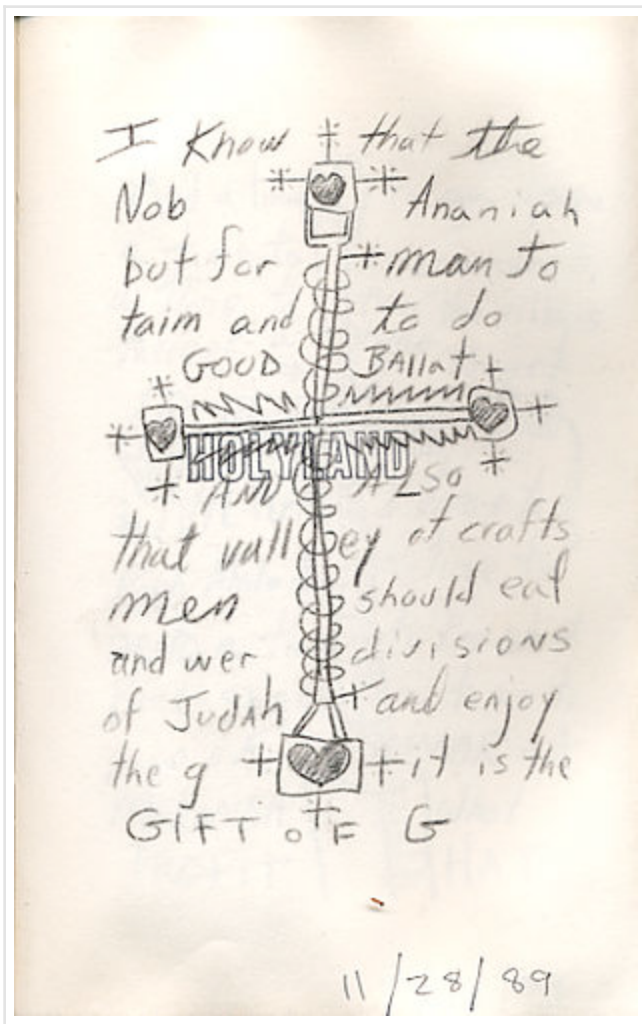 I Know that the
Nob Ananiah
but for man to
taim and to do
GOOD BAllat
HOLYLAND
AND ALSO
that vall ey of crafts
men should eat
and wer divisions
of Judah and enjoy
the g it is the
GIFT OF G
11/28/89